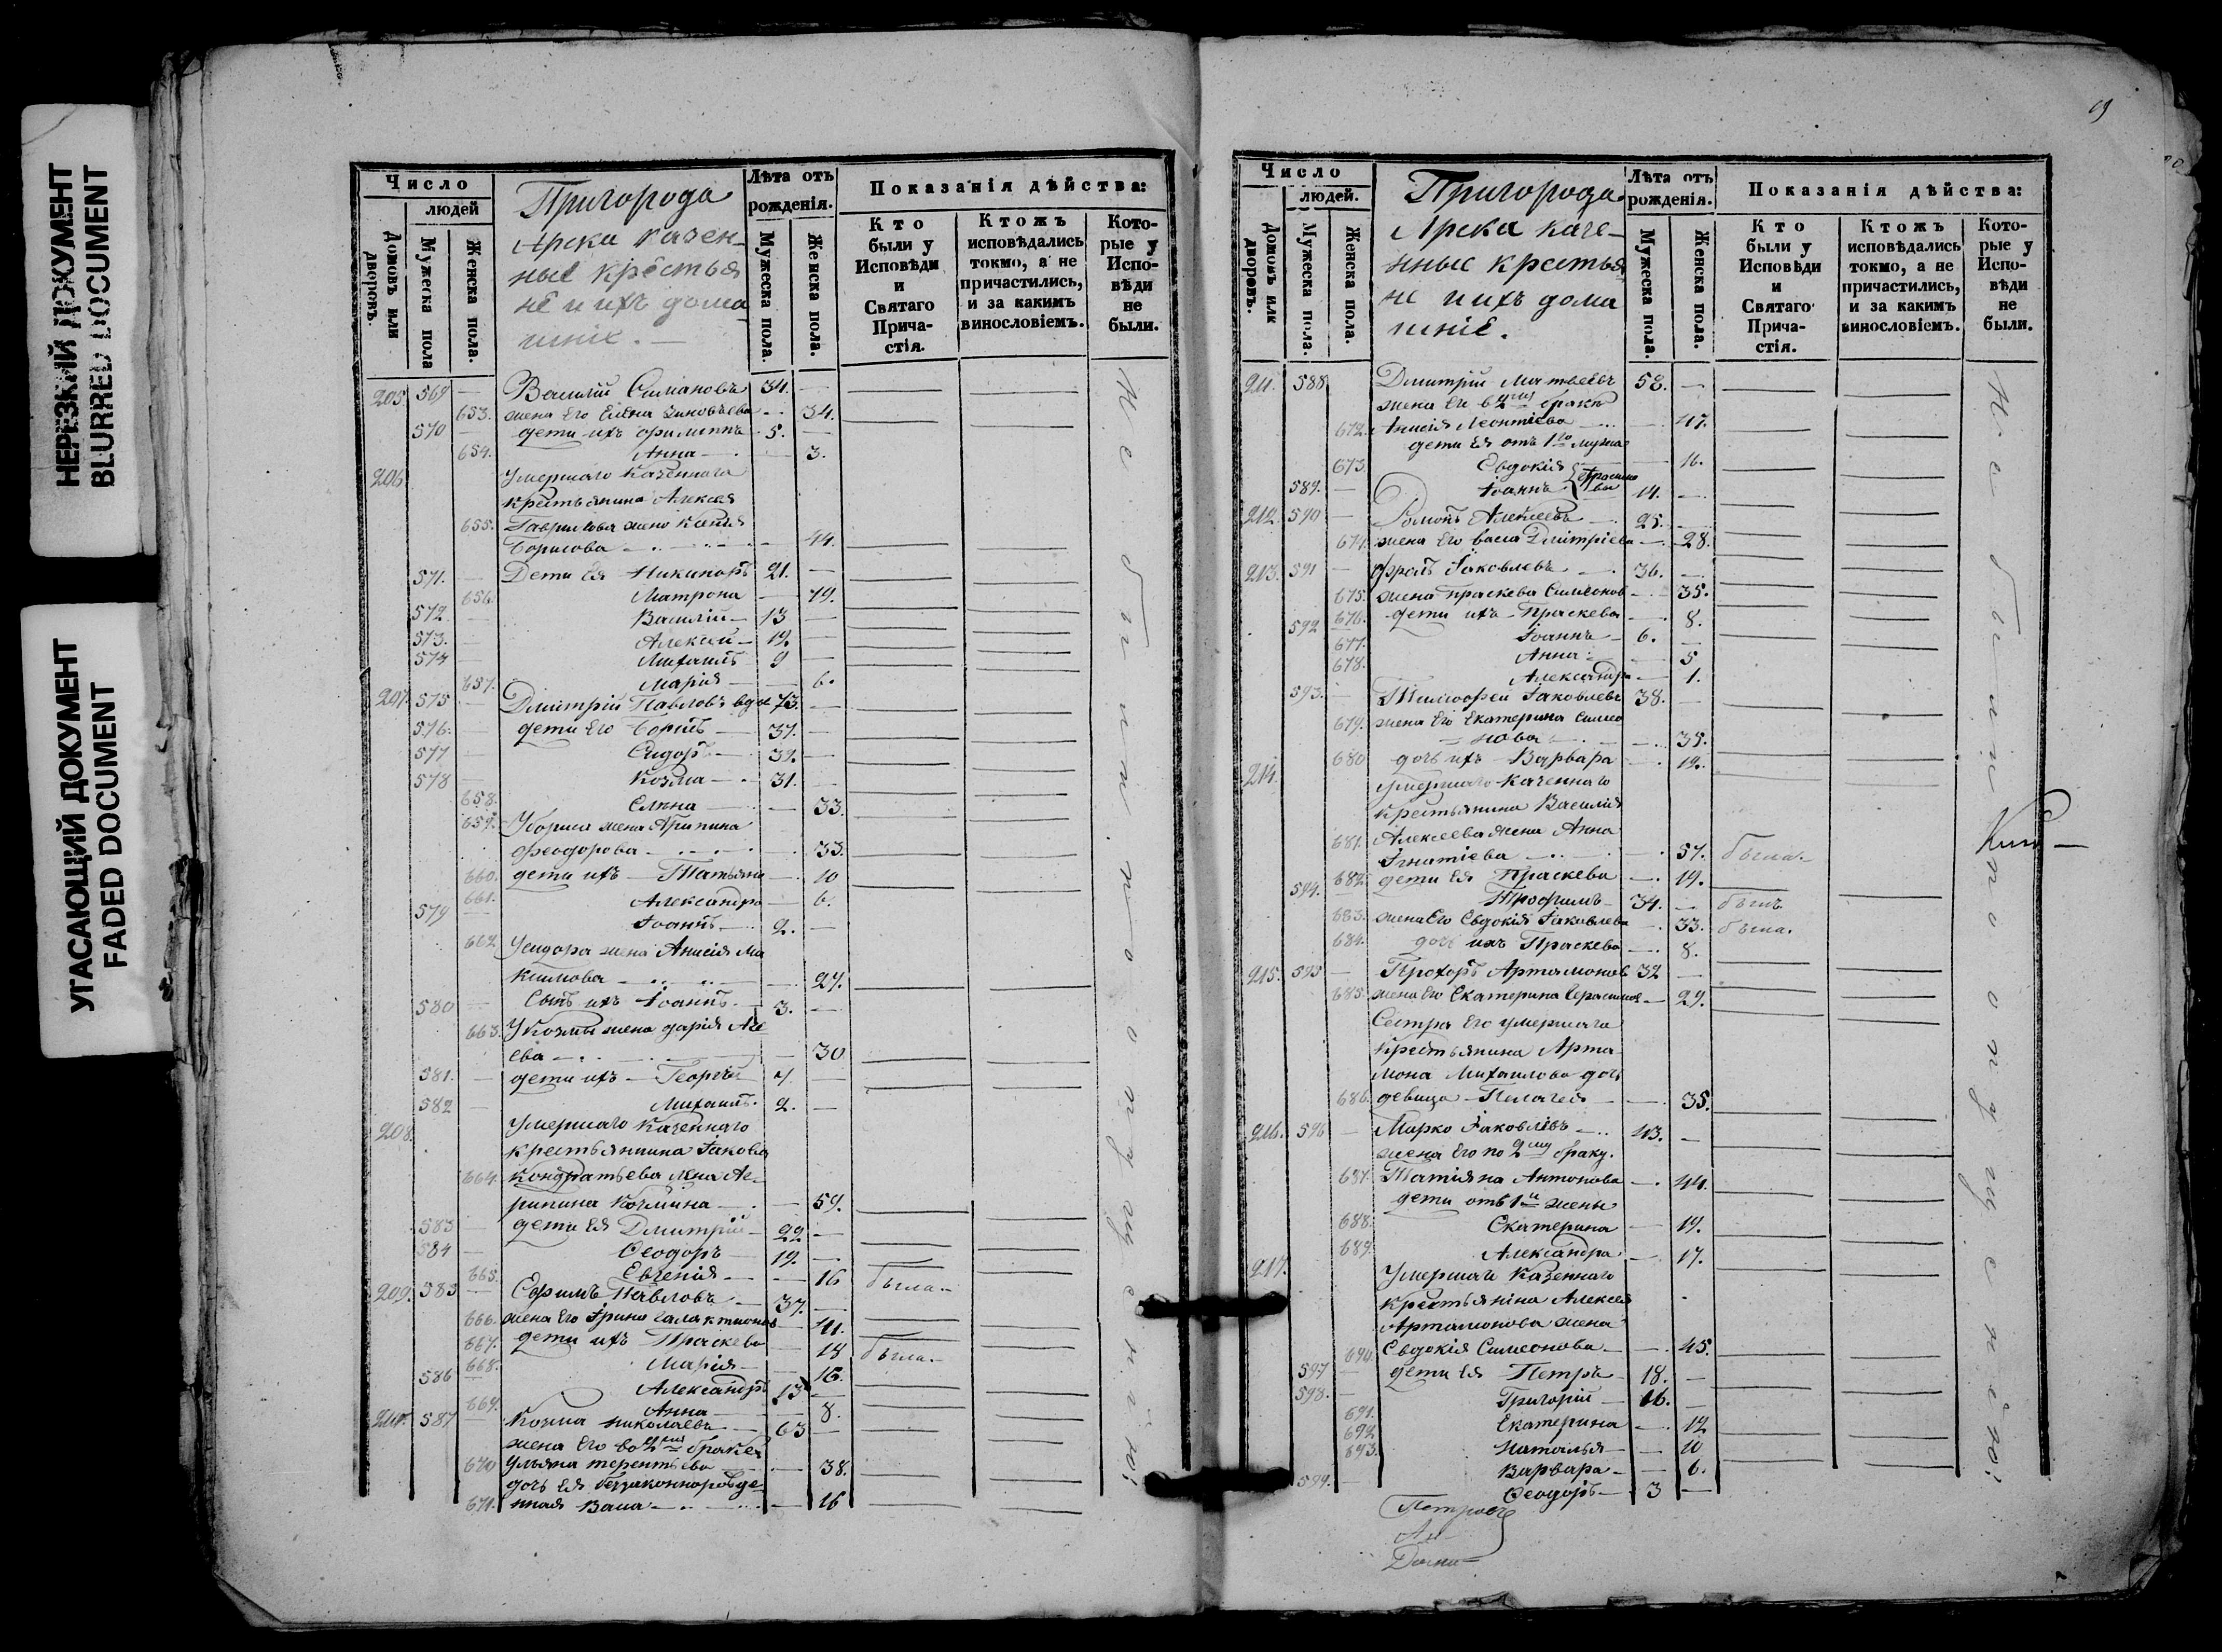 НЕРЕЗКИЙ ДОКУМЕНТ
BLURRED DOCUMENT
УГАСАЮЩИЙ ДОКУМЕНТ
FADED DOCUMENT
Число
людей
Домовъ или дворовъ.
Мужеска пола
Женска пола.
Пригорода
Арска казен-
ные крестья
не и ихъ дома
шніе. —
Лѣта отъ рожденія.
Мужеска пола.
Женска пола.
Показанія дѣйства:
Кто были у Исповѣди и Святаго Прича-стія.
Ктожъ исповѣдались токмо, а не причастились, и за какимъ винословіемъ.
Кото-рые у Испо-вѣди не были.
205. 569 — Василій Симановъ 34. —
653. жена его Елена Зиновьева — 34.
570 — дети ихъ Филиппъ 5. —
654. Анна — 3.
206 Умершаго казеннаго
крестьянина Алексея
655. Гаврилова жена
Борисова — 44.
571. — Дети ея Никиноръ 21. —
656. Матрона — 19.
572 — Василій — 13 —
573. — Алексей — 12. —
574 — Михаилъ 9 —
657. Марія — 6.
207. 575 — Дмитрій Павловъ вдов 73. —
576. — дети его Борисъ — 37. —
577 — Сидоръ — 32. —
578 — Козма — 31. —
658. Елена — 33.
659. У Бориса жена Агрипина
Феодорова — 33.
660. дети ихъ — Татьяна — 10
661. Александра — 6.
579 — Іоаннъ — 2. —
662 У Сидора жена Анисія Ма
ксимова — 27.
580 — Сынъ ихъ Іоаннъ. — 3. —
663. У Козмы жена Дарія
ева — 30
581. — дети ихъ — Георгій 7.
582 — Михаилъ. 2. —
208. Умершаго казеннаго
крестьянина Іакова
664. Кондратьева жена Аг-
рипина Козмина — 59.
583 — дети ея Дмитрій — 22 —
584 — Феодоръ 19. —
665. Евгенія — 16 была. —
209. 585 — Ефимъ Павловъ — 37. —
666. жена его Ирина Галактионова 41.
667. дети ихъ Праскева — 18 была. —
668. Марія — 16.
586 — Александръ 13 —
669. Анна — 8.
210. 587 — Козма Николаевъ — 63 —
жена его во 2мъ браке
670 Ульяна Терентьева — 38.
дочь ея беззаконнорожде-
671. нная Васса — 16
Не были по опущенію.
09
Число
людей.
Домовъ или дворовъ.
Мужеска пола.
Женска пола.
Пригорода
Арска казе-
нные крестья
не и ихъ дома
шніе.
Лѣта отъ рожденія.
Мужеска пола.
Женска пола.
Показанія дѣйства:
Кто были у Исповѣди и Святаго Прича-стія.
Ктожъ исповѣдались токмо, а не причастились, и за какимъ винословіемъ.
Кото-рые у Испо-вѣди не были.
211. 588 Дмитрій Матвеевъ 58. —
жена его 2мъ бракѣ
672. Анисія Леонтіева — 47.
дети ея отъ 1го мужа
673. Евдокія — 16.
589. — Іоаннъ 14. —
212 590 — Романъ Алексеевъ — 25. —
674. жена его Васса Дмитріева — 28.
213. 591 — Фролъ Іаковлевъ — 36. —
675. жена Праскева Симеонов — 35.
676. дети ихъ — Праскева — 8.
592 Іоаннъ — 6. —
677. Анна — 5
678. Александра — 1.
593. — Тимофей Іаковлевъ 38. —
679. жена его Екатерина Симео
нова — 35.
680 дочь ихъ — Варвара — 12.
214. Умершаго казеннаго
крестьянина Василія
681. Алексеева жена Анна
Игнатіева — 57. была. —
682. дети ея Праскева — 19.
594. Трофимъ — 34. — былъ
683. жена его Евдокія Іаковлева — 33. была.
684. дочь ихъ Праскева — 8.
215. 595 — Прохоръ Артамоновъ 32 —
685. жена его Екатерина Герасимов — 29.
Сестра его умершаго
крестьянина Арта
мона Михаилова дочь
686. девица — Пелагея — 35.
216. 596 — Марко Іаковлевъ — 43. —
жена его по 2му браку.
687. Татіяна Антонова — 44.
дети отъ 1й жены
688. Екатерина — 19.
689. Александра — 17.
217. Умершаго казеннаго
крестьянина Алексея
Артамонова жена
690. Евдокія Симеонова — 45.
597 — дети ея — Петръ — 18. —
598. — Григорій — 16. —
691. Екатерина — 12
692 Наталья — 10
693. Варвара — 6.
599. — Феодоръ — 3 —
Не были по опущенію.